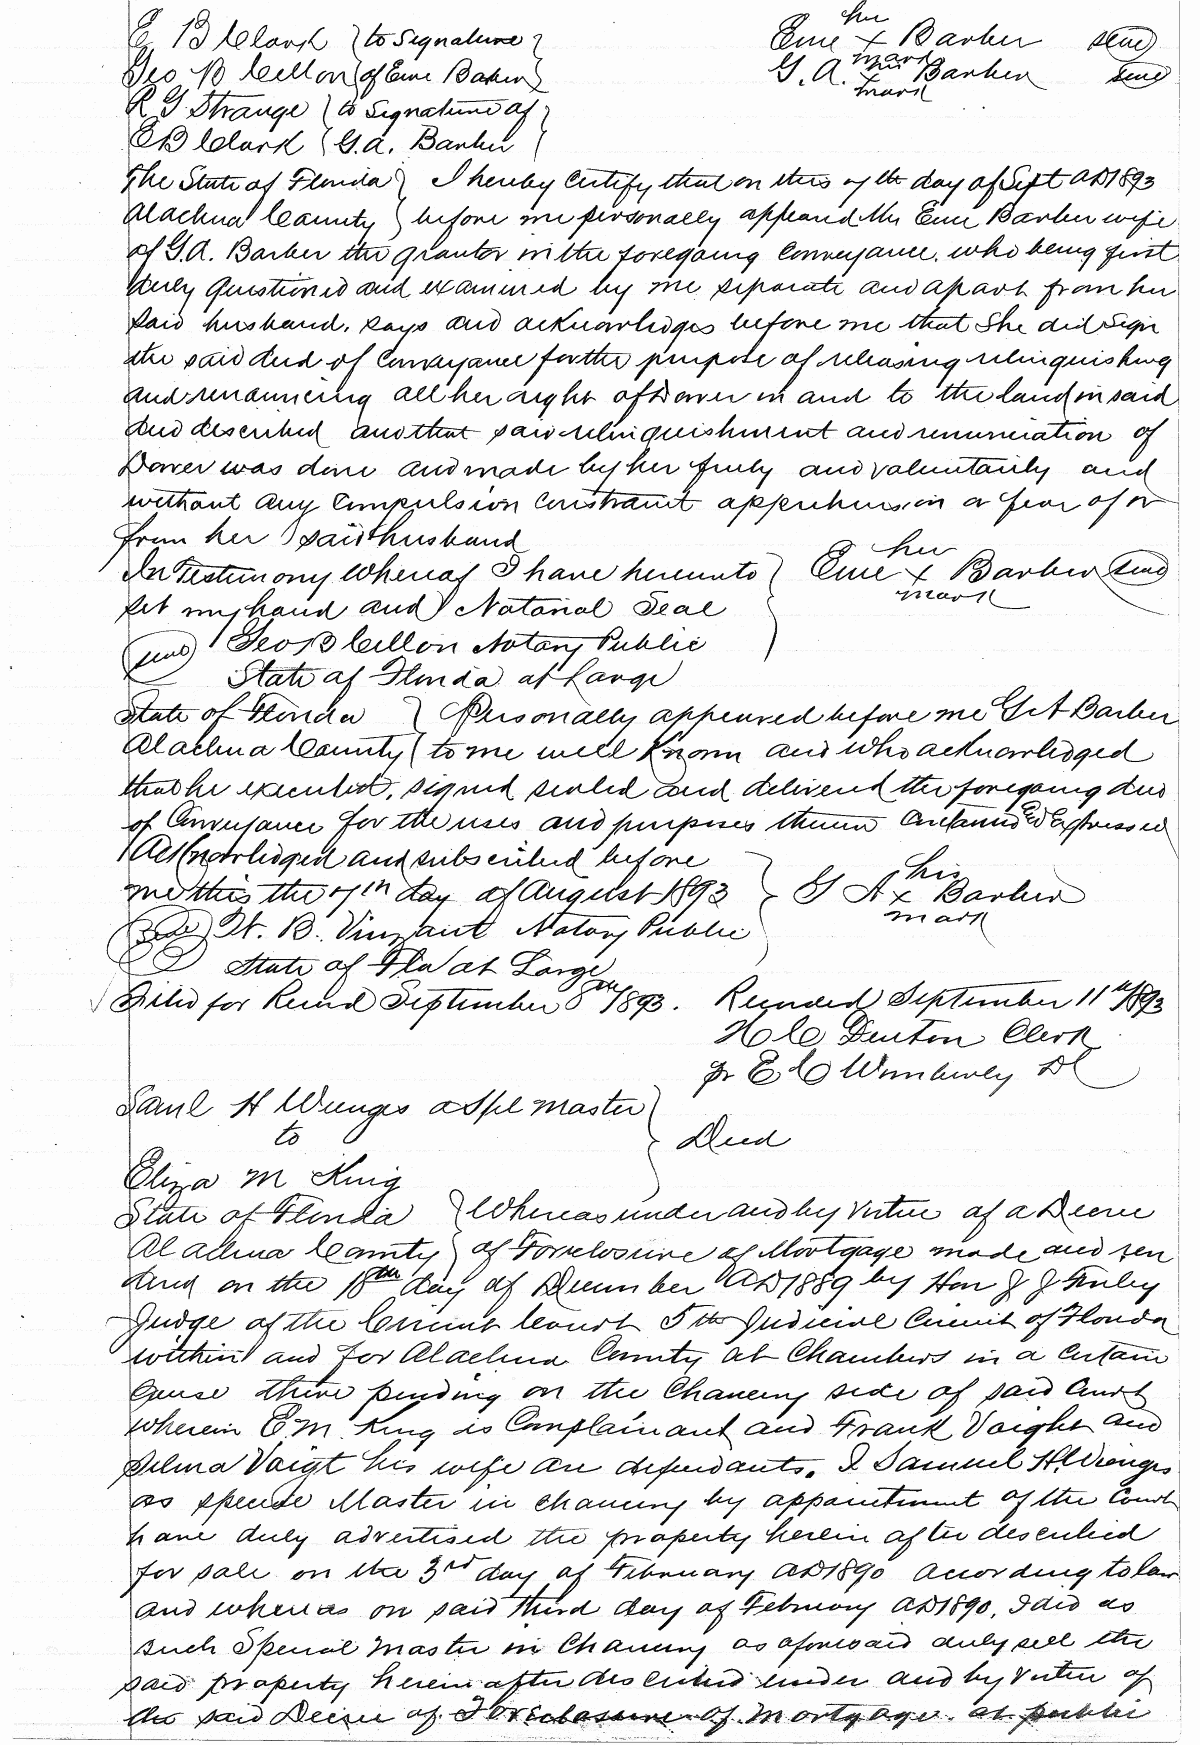 E B Clark } to Signature } her
Geo B Cellon } of Eme Baker } Eme x Barber seal
mark
his
G. A. x Barber seal
mark
R G Strange } to Signature of }
E B Clark { G.A. Barber {
The State of Florida } I hereby Certify that on this 7th day of Sept AD 1893
Alachua County } before me personally appeared Mrs Eme Barber wife
of G.A. Barber the grantor in the foregoing Conveyance, who being first
duly questioned and examined by me separate and apart from her
said husband, says and acknowledges before me that She did Sign
the said deed of Conveyance for the purpose of releasing relinquishing
and renouncing all her right of Dower in and to the land in said
deed described and that said relinquishment and renunciation of
Dower was done and made by her freely and voluntarily and
without any Compulsion Constraint apprehension or fear of or
from her said husband
In Testimony Whereof I have hereunto } her
set my hand and Notarial Seal } Eme x Barber seal
mark
seal Geo B Cellon Notary Public
State of Florida at Large
State of Florida } Personally appeared before me G A Barber
Alachua County { to me well known and who acknowledged
that he executed, signed sealed and delivered the foregoing deed
of Conveyance for the uses and purposes therein Contained Ed Expressed
Acknowledged and subscribed before } his
me this the 7th day of August 1893 } G A x Barber
mark
seal W. B. Vinzant Notary Public
State of Fla at Large
Filed for Record September 8th 1893. Recorded September 11th 1893
H C Denton Clerk
pr E C Wimberley DC
Saml H Wienges as Spl Master }
to } Deed
Eliza M King
State of Florida } Whereas under and by virtue of a Decree
Alachua County } of Foreclosure of Mortgage made and ren
dered on the 18th day of December AD 1889 by Hon J J Finley
Judge of the Circuit Court 5th Judicial Circuit of Florida
within and for Alachua County at Chambers in a Certain
Cause there pending on the Chancery side of said Court
wherein E.M. King is Complainant and Frank Vaight and
Selma Voigt his wife are defendants. I Samuel H. Wienges
as special Master in chancery by appointment of the Court
have duly advertised the property herein after described
for sale on the 3rd day of February AD 1890 according to law
and whereas on said third day of February AD 1890, I did as
such Special Master in Chancery as aforesaid duly sell the
said property herein after described under and by virtue of
the said Decree of Foreclosure of Mortgage at public